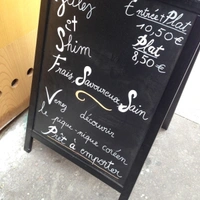 Entrée + Plat
et
10,50 €
Shim
Plat
8,50 €
Frais, Savoureux, Sain
Venez découvrir
le pique-nique coréen
Prêt à emporter